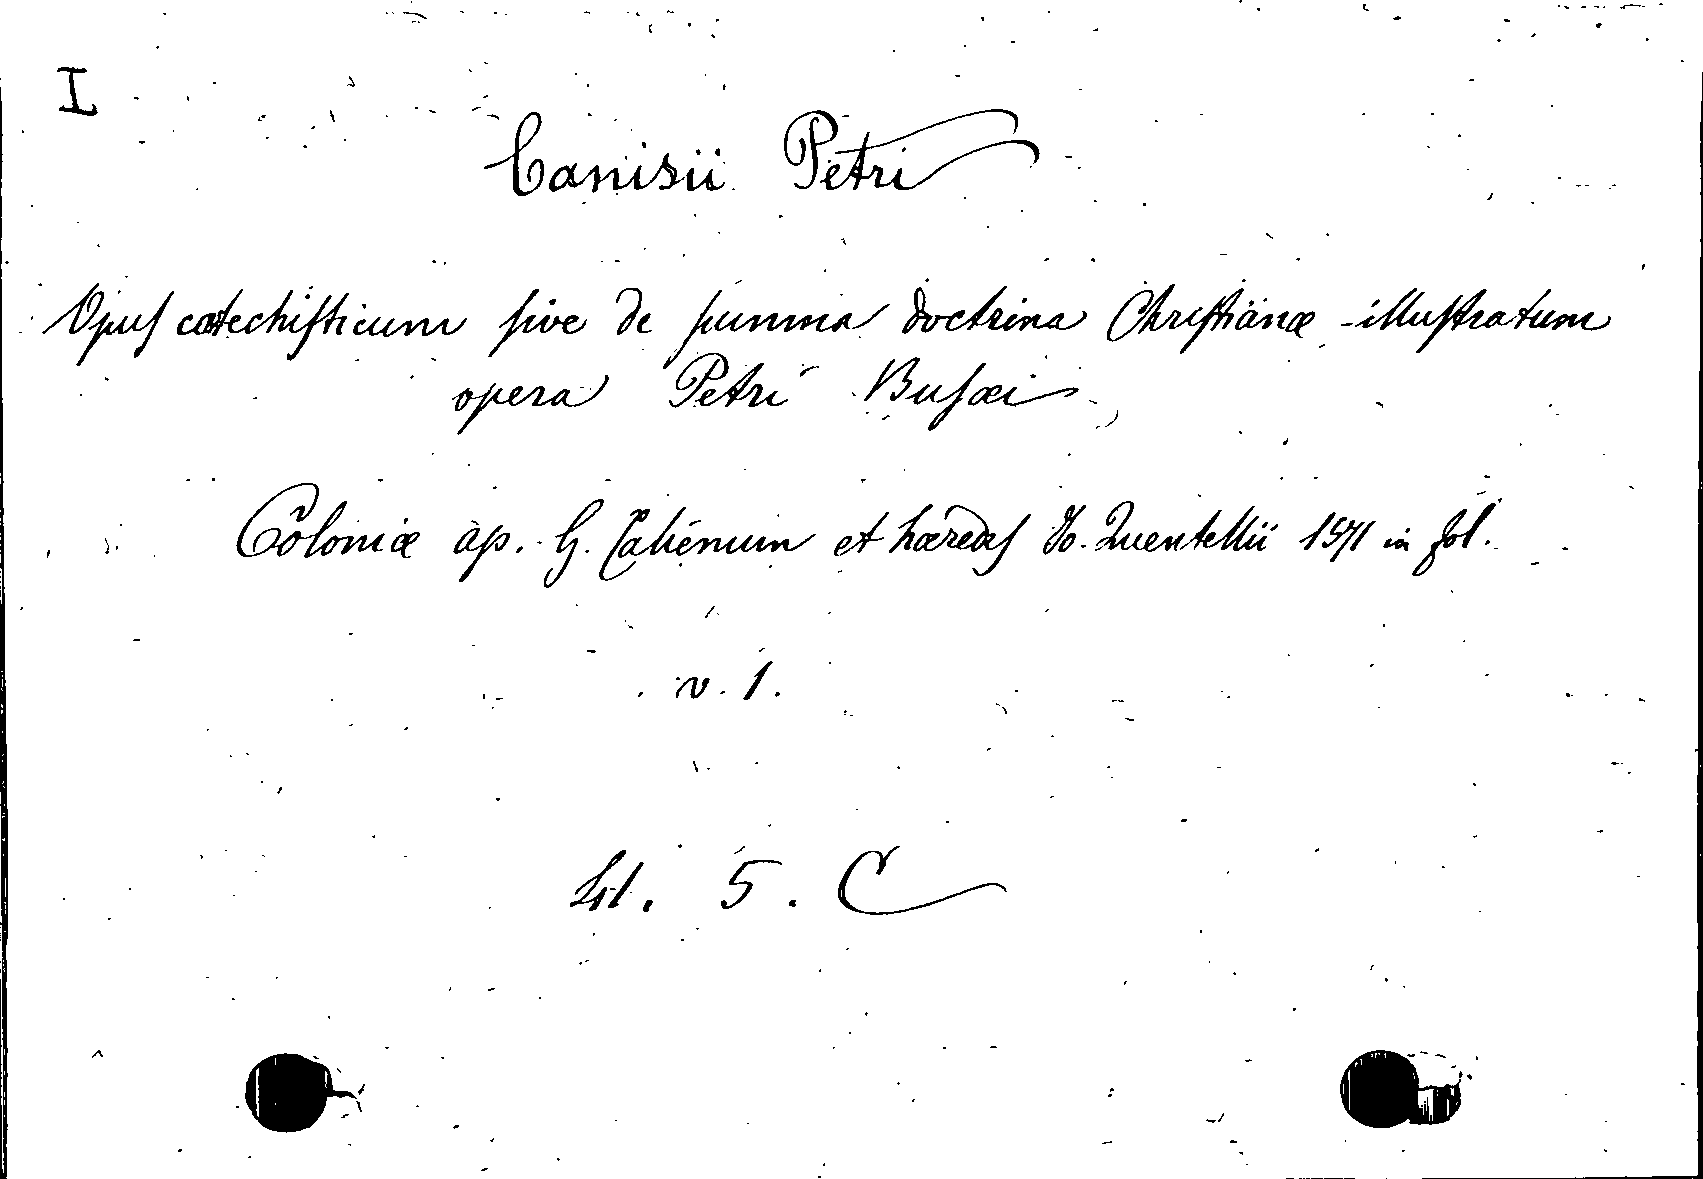 I
Canisii Petri
Opus catechisticum sive de summa doctrina Christianæ illustratum
opera Petri Busæi
Coloniæ ap. G. Calienum et hæredes Jo. Quentellii 1571 in fol.
v. 1.
5. C